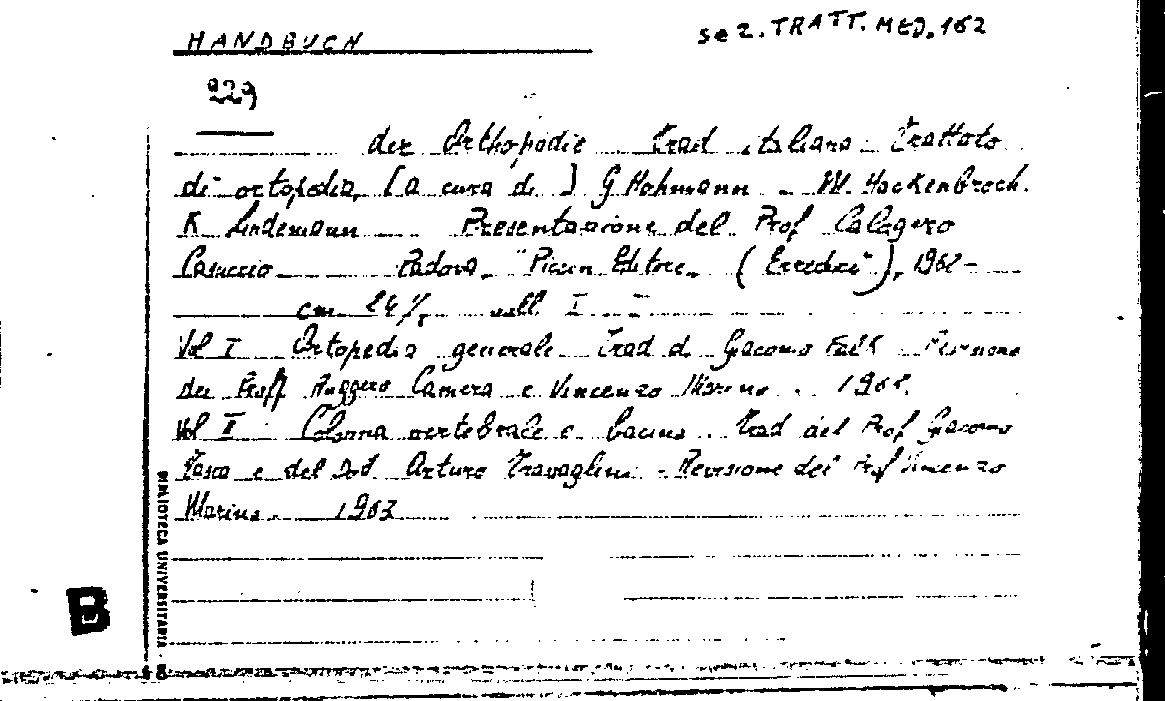 HANDBUCH
sez. TRATT. MED. 162
229
der Orthopädie Trad italiana Trattato
di ortopedia, [a cura di] G Hohmann - M. Hackenbroch.
K Lindemann Presentazione del Prof Calogero
Casuccio Padova, "Piccin Editore, 1962 -
cm 24 voll I - II
Vol I Ortopedia generale Trad di Giacomo Revisione
dei Proff Ruggero Camera e Vincenzo 1962.
Vol II Colonna vertebrale e bacino. Trad del Prof Giacomo
e del Dott Arturo Travaglini - Revisione del Prof Vincenzo
Marino. 1963
BIBLIOTECA UNIVERSITARIA
B